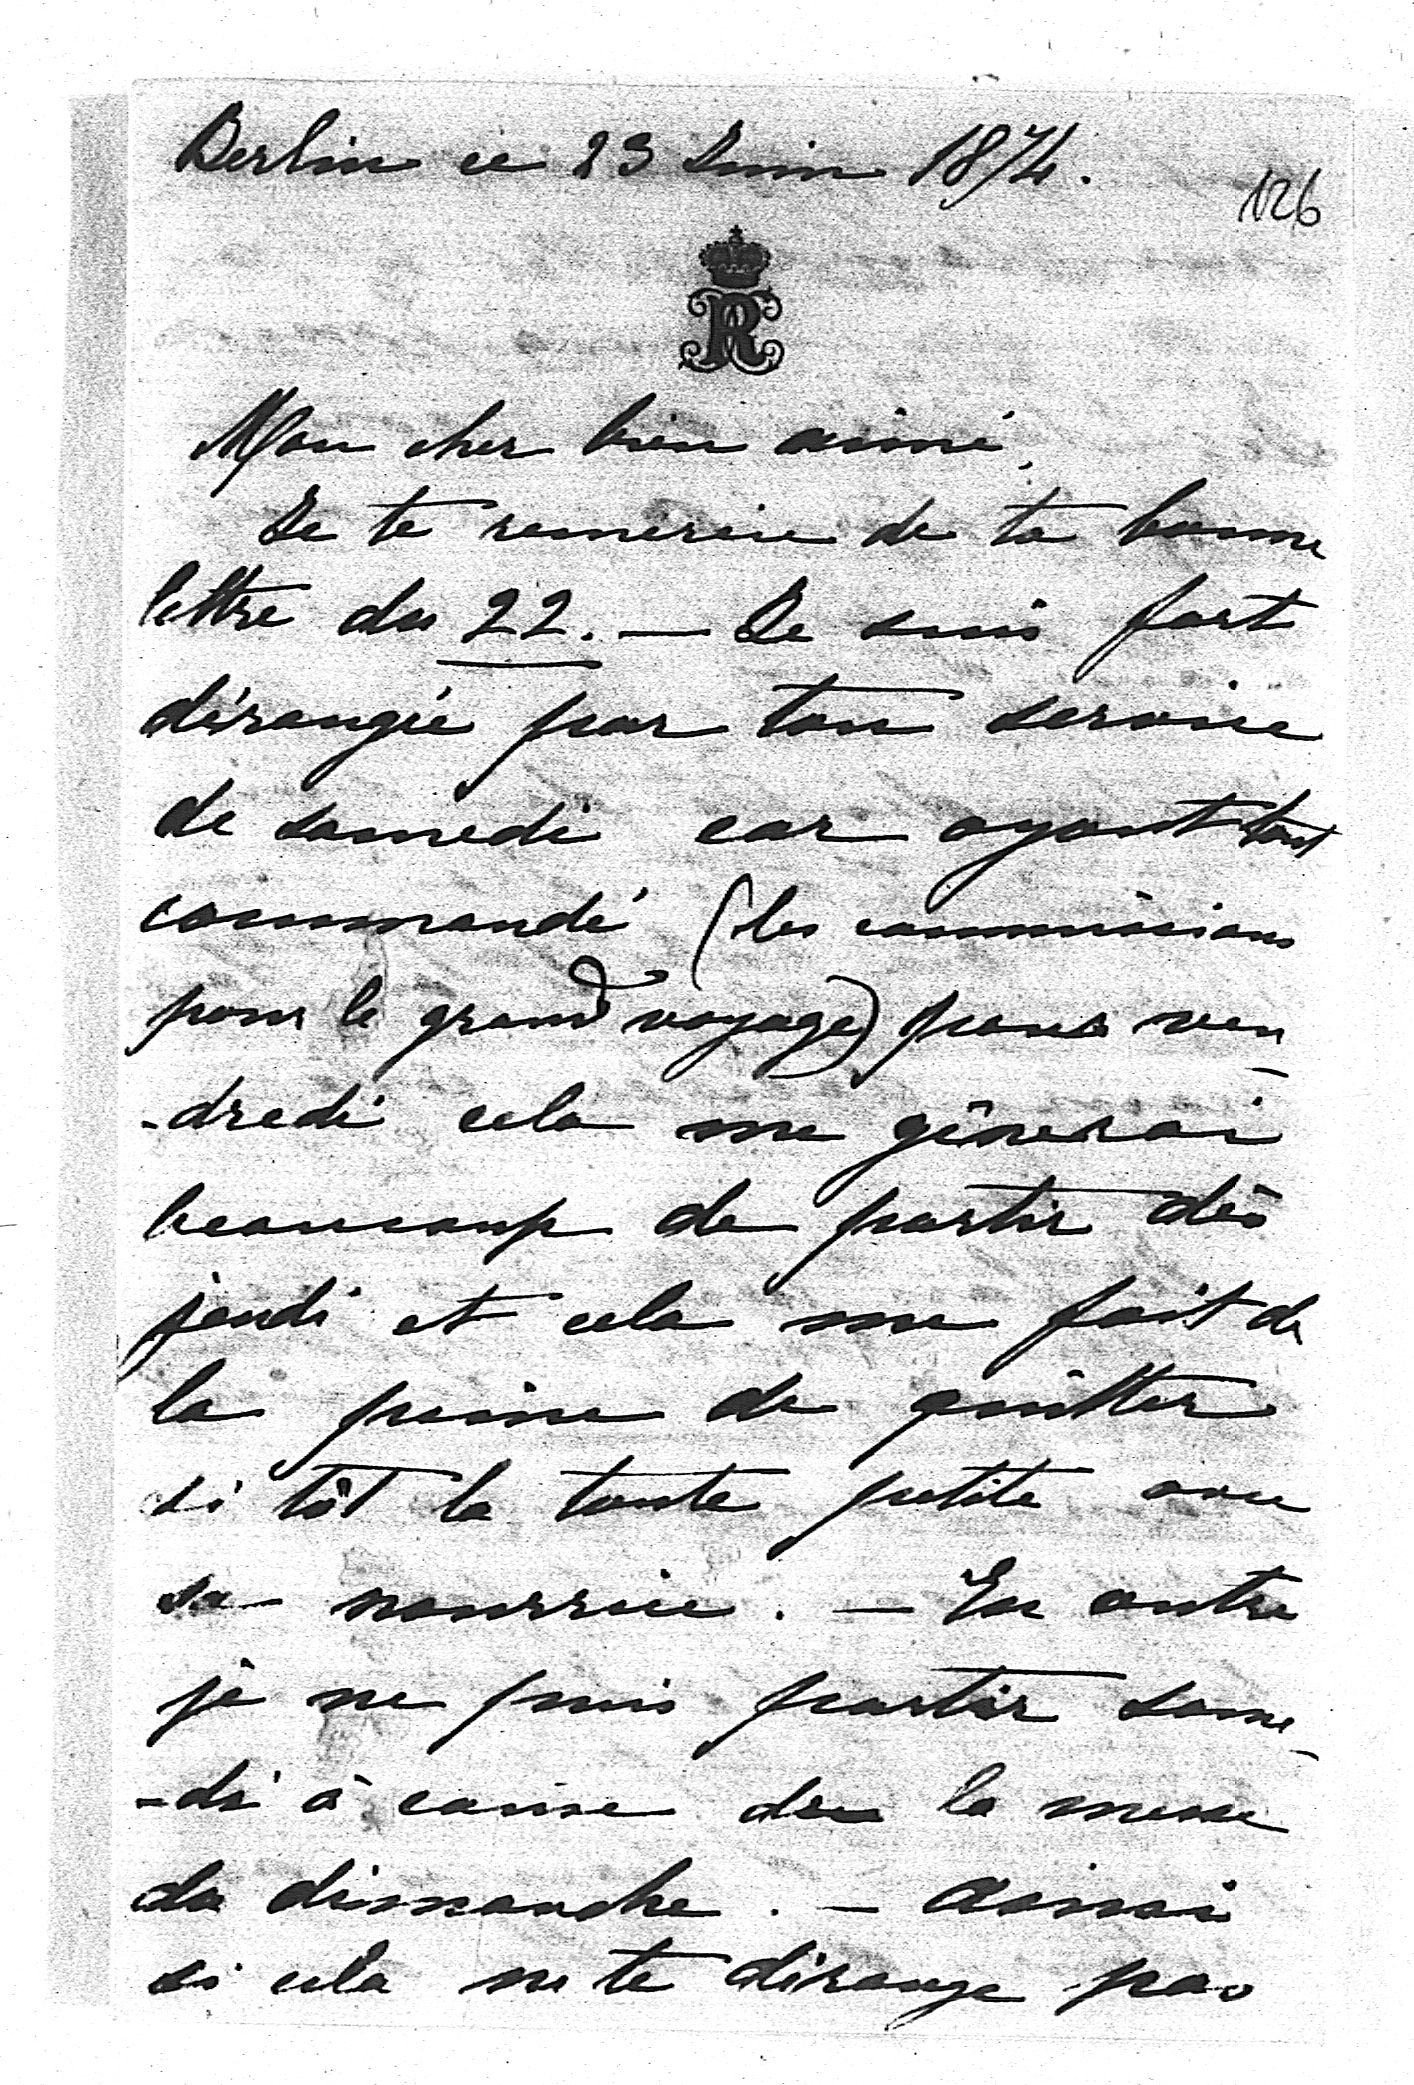 Berlin ce 23 Juin 1874.
126
R
Mon cher bien aimé,
Je te remercie de ta bonne
lettre du 22. — Je suis fort
dérangée par ton service
de samedi car ayant tout
commandé (les commissions
pour le grand voyage) pour ven
-dredi cela me gênerai
beaucoup de partir dès
jeudi et cela me fait de
la peine de quitter
si tôt la toute petite avec
sa nourrice. — En outre
je ne puis partir same
-di à cause de la messe
du dimanche. — Aussi
si cela ne te dérange pas